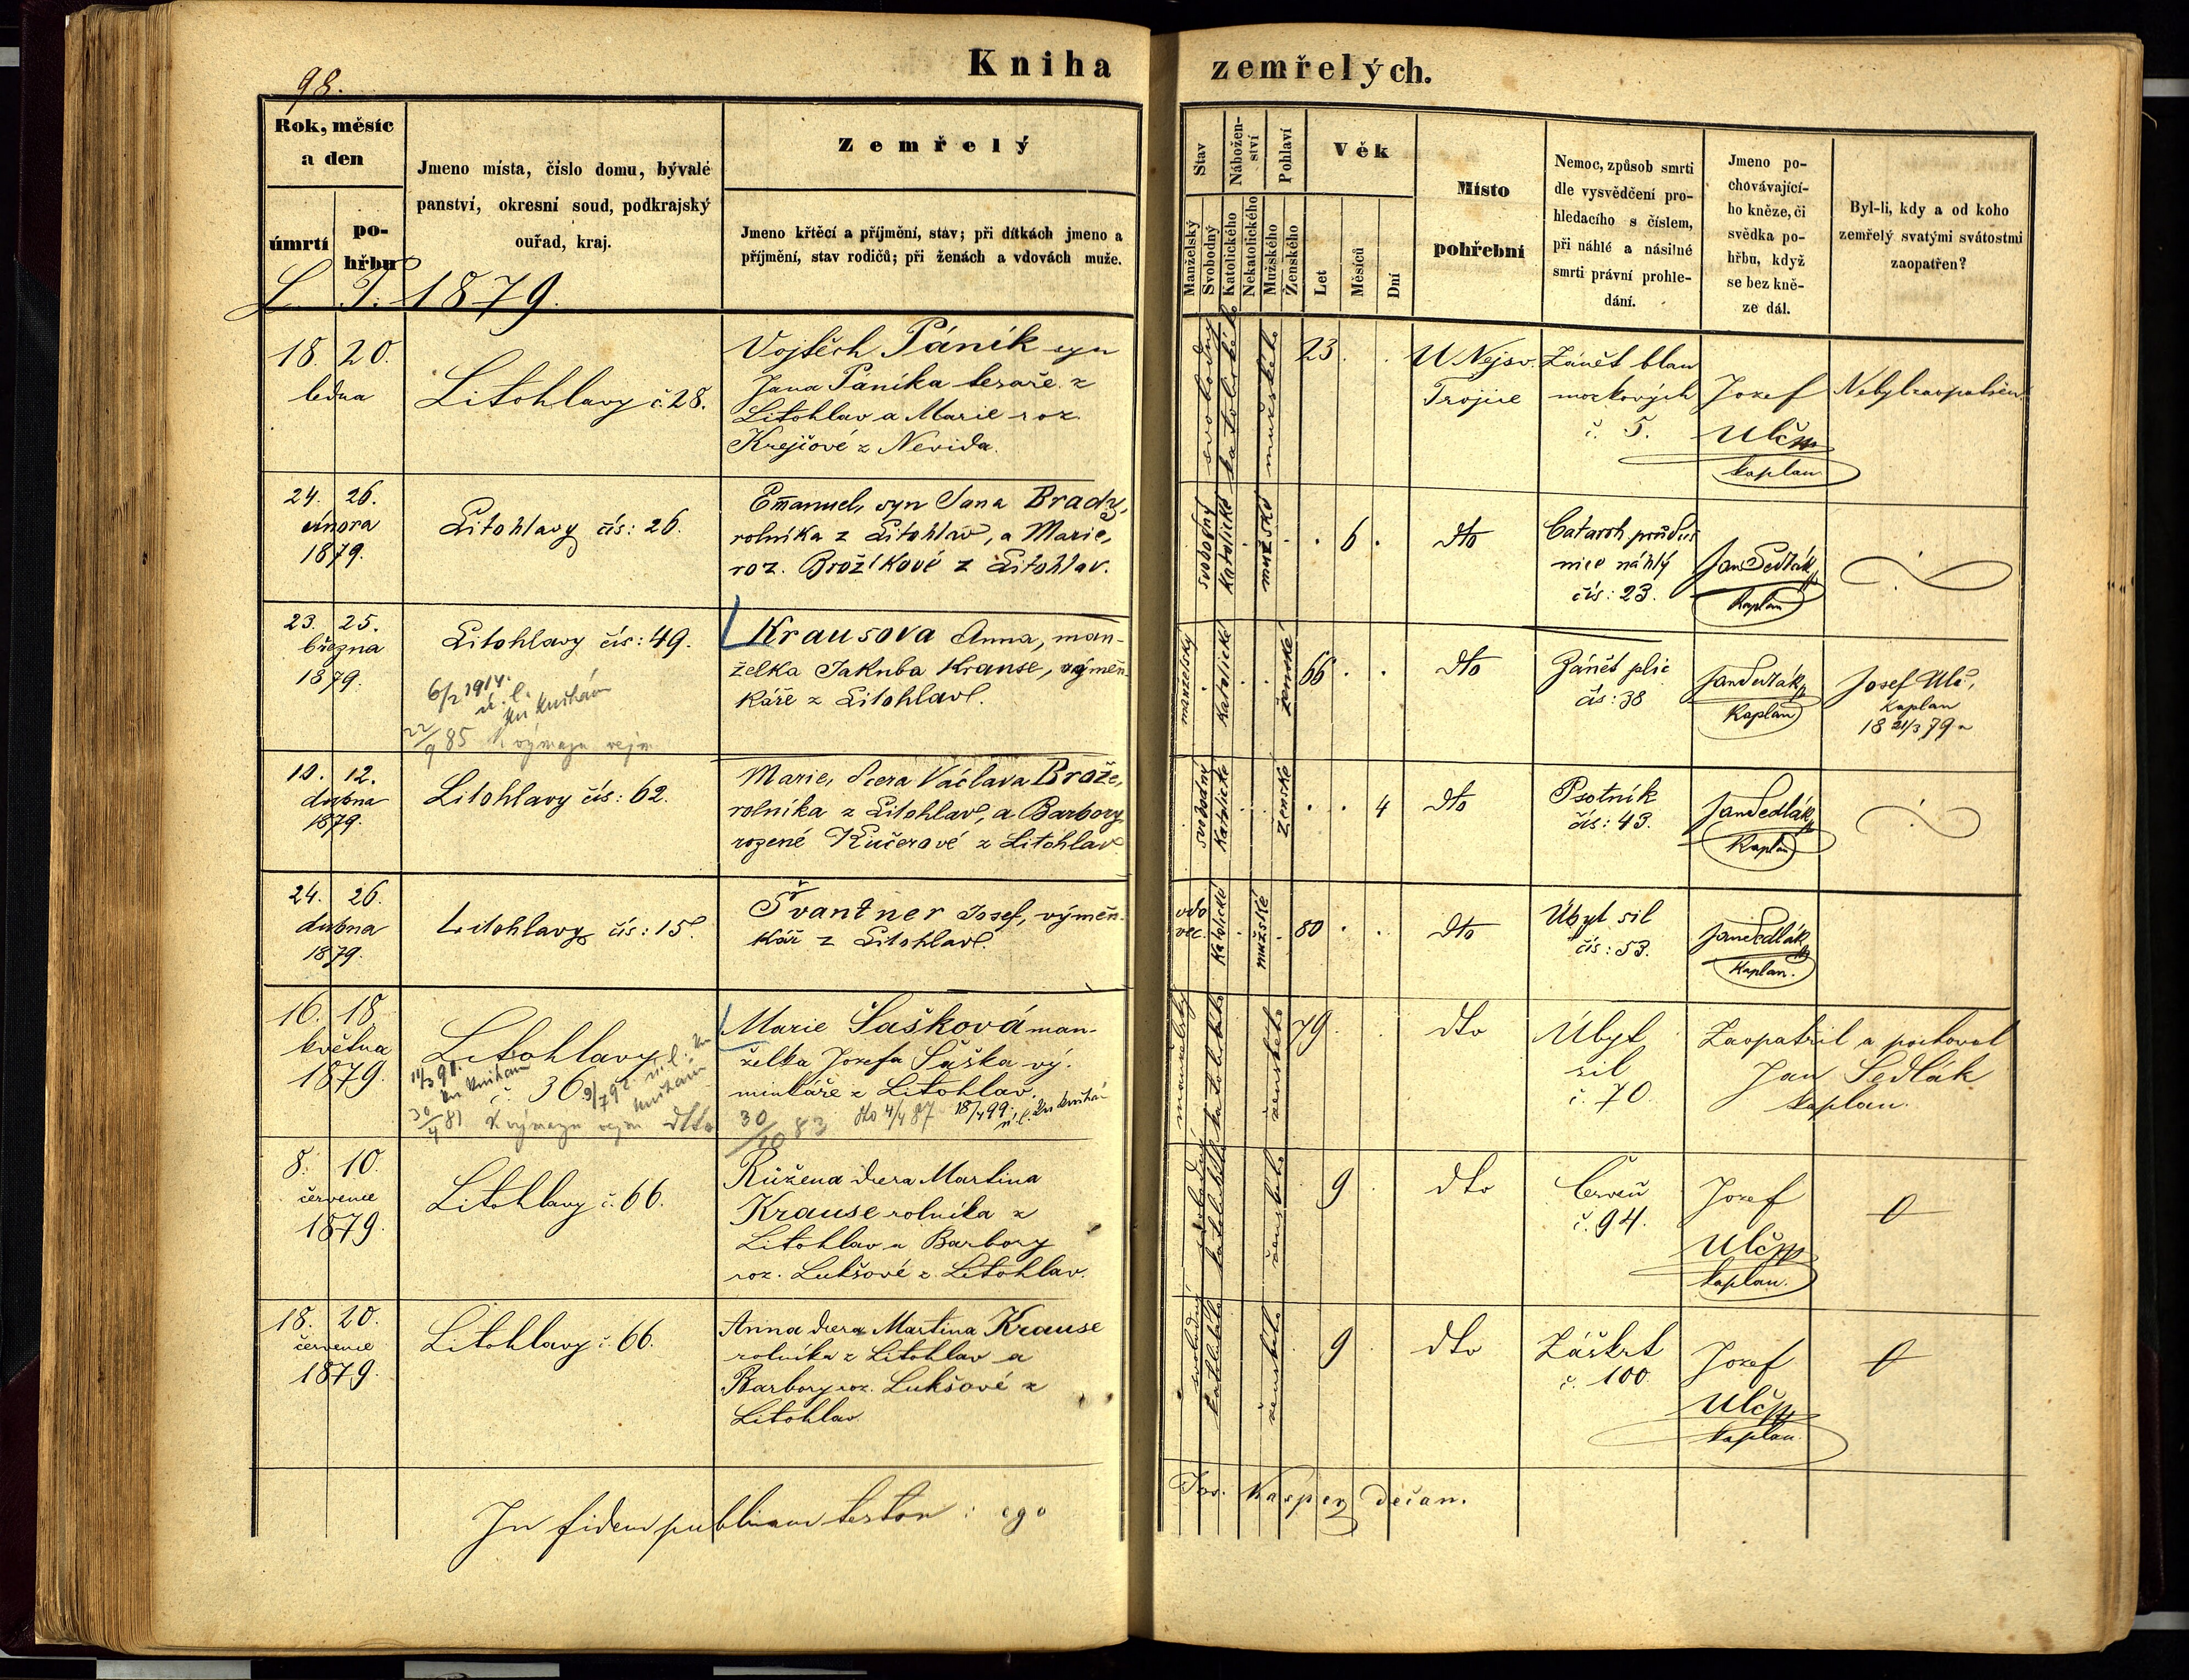 98.
Kniha zemřelých.
Rok, měsíc
a den
úmrtí
po-
hřbu
Jmeno místa, číslo domu, bývalé
panství, okresní soud, podkrajský
ouřad, kraj.
Zemřelý
Jmeno křtěcí a příjmění, stav; při dítkách jmeno a
příjmění, stav rodičů; při ženách a vdovách muže.
Stav
Manželský
Svobodný
Nábožen-
ství
Katolického
Nekatolického
Pohlaví
Mužského
Ženského
Věk
Let
Měsíců
Dní
Místo
pohřební
Nemoc, způsob smrti
dle vysvědčení pro-
hledacího s číslem,
při náhlé a násilné
smrti právní prohle-
dání.
Jmeno po-
chovávající-
ho kněze, či
svědka po-
hřbu, když
se bez kně-
ze dál.
Byl-li, kdy a od koho
zemřelý svatými svátostmi
zaopatřen?
L. P. 1879.
18. 20.
ledna
Litohlavy č. 28.
Vojtěch Páník syn
Jana Páníka tesaře z
Litohlav a Marie roz.
Krejčové z Nevida.
svobodný
katolického
mužského
23. .
U Nejsv.
Trojice
Zánět blan
mozkových
č. 5.
Jozef
Ulč
kaplan
Nebyl zaopatřen
24. 26.
února
1879.
Litohlavy čís: 26.
Emanuel, syn Jana Brady,
rolníka z Litohlav, a Marie,
roz. Brožíkové z Litohlav.
svobodný
katolické
mužské
. 6 .
dto
Catarrh průduš
nice náhlý
čís: 23.
Jan Sedlák
Kaplan
23. 25.
března
1879.
Litohlavy čís: 49.
6/2 1914.
22/9 85 K výmazu
Krausova Anna, man-
želka Jakuba Krause, výměn-
káře z Litohlav.
manželský
katolické
ženské
66 . .
dto
Zánět plic
čís: 38
Jan Sedlák
Kaplan
Josef Ulč,
Kaplan
18 21/3 79
10. 12.
dubna
1879.
Litohlavy čís: 62.
Marie, dcera Václava Brože,
rolníka z Litohlav, a Barbory
rozené Kučerové z Litohlav
svobodný
katolické
ženské
. . 4
dto
Psotník
čís: 43.
Jan Sedlák
Kaplan
24. 26.
dubna
1879.
Litohlavy čís: 15.
Švantner Josef, výměn-
kář z Litohlav.
vdo
vec.
katolické
mužské
80 . .
dto
Úbyt sil
čís: 53.
Jan Sedlák
Kaplan.
16. 18
května
1879.
Litohlavy
č. 36
30/4 81 K výmazu dto
Marie Šašková man-
želka Josefa Šaška vý-
minkáře z Litohlav.
30/10 83 dto 4/4 87 18/4 99
manželský
katolického
ženského
79. .
dto
Úbyt
sil
č. 70
Zaopatřil a pochoval
Jan Sedlák
kaplan.
8. 10.
července
1879.
Litohlavy č. 66.
Růžena dcera Martina
Krause rolníka z
Litohlav a Barbory
roz. Lukšové z Litohlav.
svobodný
katolického
ženského
9
dto
Červen
č. 94.
Jozef
Ulč
kaplan.
0
18. 20.
července
1879.
Litohlavy č. 66.
Anna dcera Martina Krause
rolníka z Litohlav a
Barbory roz. Lukšové z
Litohlav.
svobodný
katolického
ženského
9
dto
Záškrt
č. 100
Jozef
Ulč
kaplan.
0
In fidem publicam testor: ego
Jos. Kasper děčan.